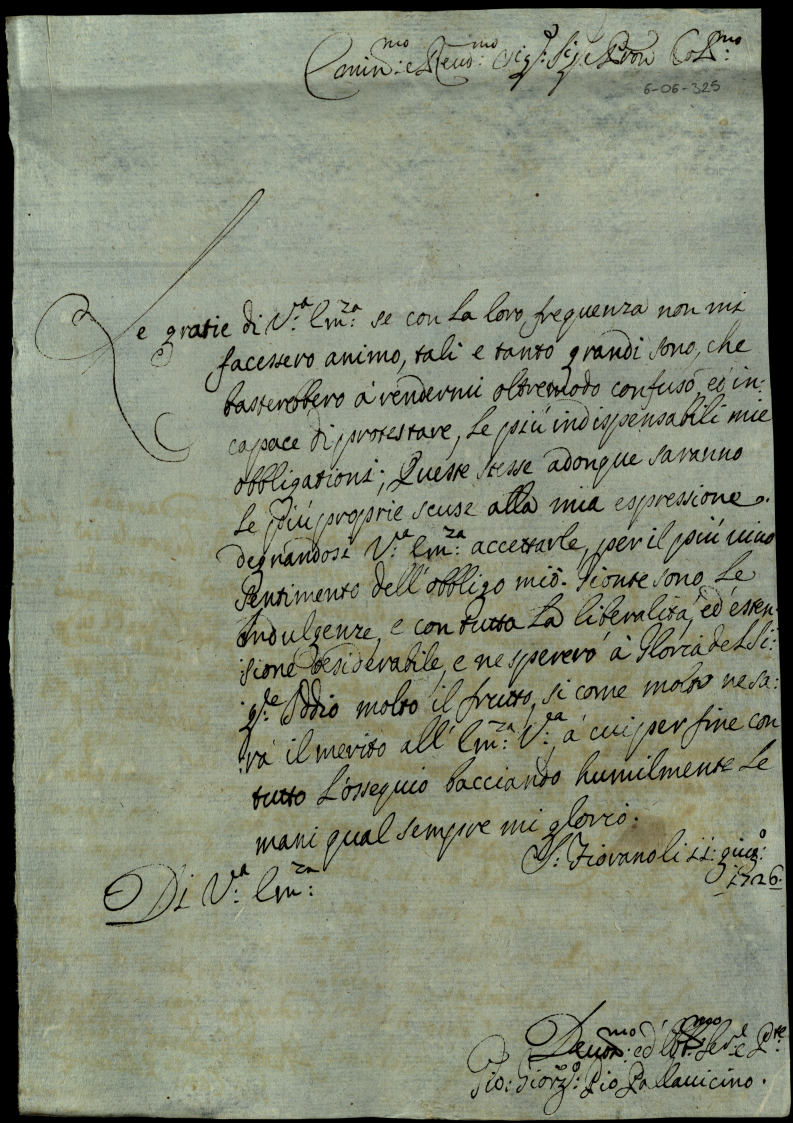 Emin:mo e Reud:mo Sig:r Sig:e Pron Col:mo
6-06-325
Le gratie di V:a Em:za se con La loro frequenza non mi
facessero animo, tali e tanto grandi sono, che
basterebbero à rendermi oltremodo confuso, ed in:
capace di protestare, Le più indispensabili mie
obbligationi; Queste stesse adonque saranno
Le più proprie scuse alla mia espressione
degnandosi V:a Em:za accettarle, per il più uiuo
Sentimento dell'obbligo mio. Gionte sono Le
Indulgenze, e con tutta La liberalità, ed esten:
sione desiderabile, e ne spererò à Gloria del Si:
g:re Iddio molto il frutto, si come molto ne sa:
rà il merito all' Em:za V:a, à cui per fine con
tutto L'ossequio bacciando humilmente Le
mani qual sempre mi glorio.
S: Giovanoli 11: giug:o
1726.
Di V:a Em:za
Deuot:mo ed Obb:mo Se:re
Gio: Giorg:o Pio Pallauicino.